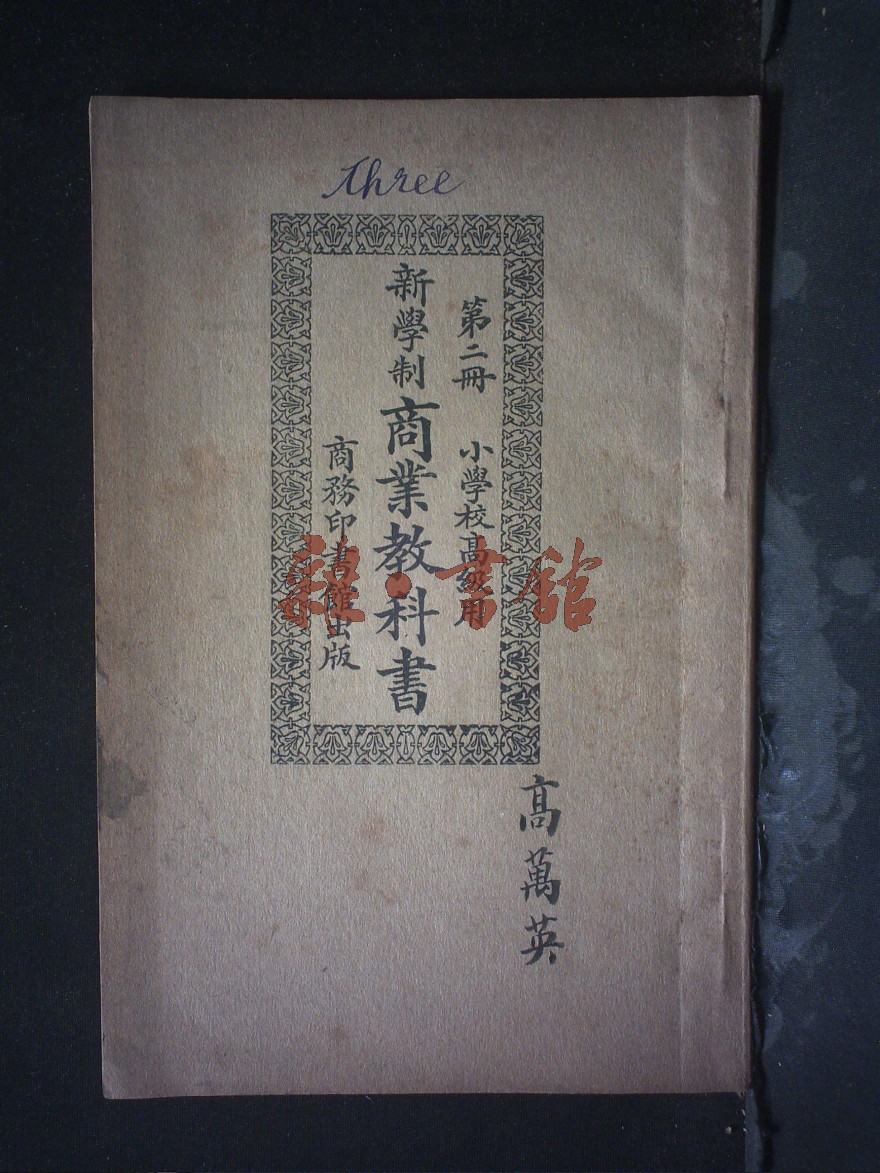 three
第二冊 小學校高級用
新學制商業教科書
商務印書館出版
高萬英
雜·書館